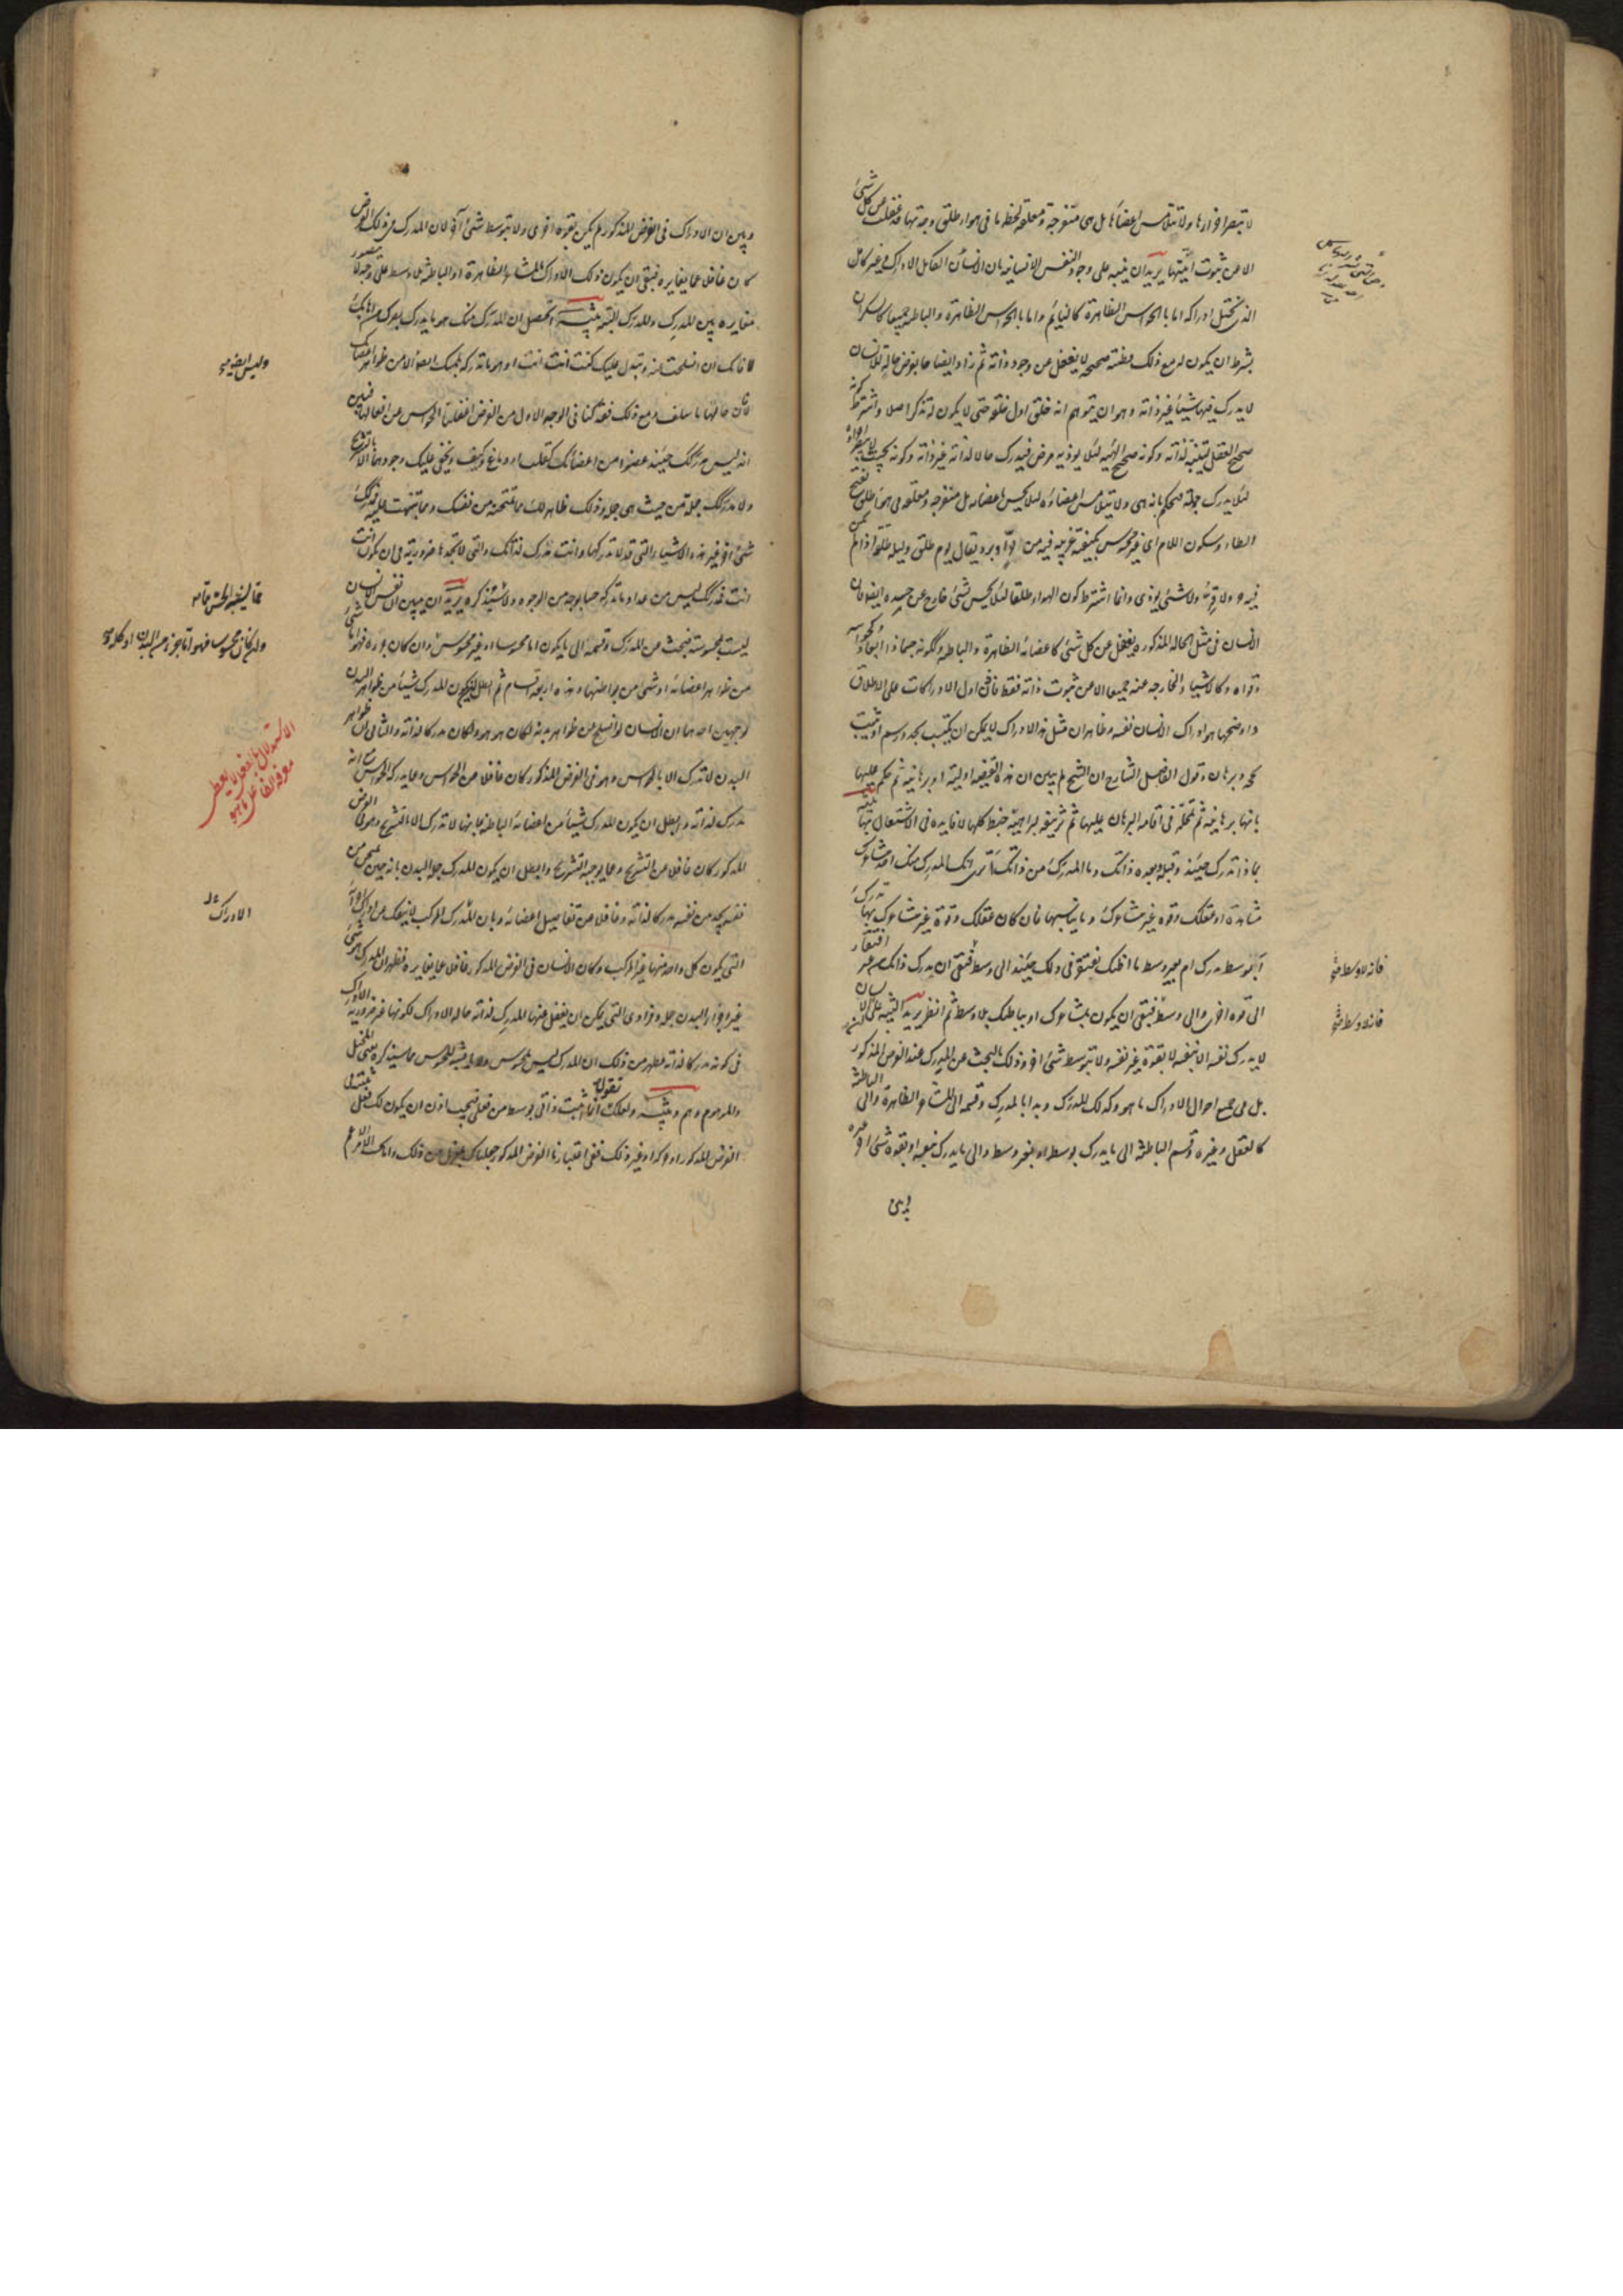 لا تبصر اجزاءها ولا تتلامس اعضاؤها بل هي منفرجة ومعلقة لحظة ما في هواء طلق وجدتها قد غفلت عن كل شيء
الا عن ثبوت انيتها يريد ان ينبه على وجود النفس الانسانية بان الانسان الكامل الادراك وغير كامل
الذي يختل ادراكه اما بالحواس الظاهرة كالنائم واما بالحواس الظاهرة والباطنة جميعا كالسكران
بشرط ان يكون له مع ذلك فطنة صحيحة لا يغفل عن وجود ذاته ثم زاد ايضاحا بفرض حالة للانسان
لا يدرك فيها شيئا غير ذاته وهو ان يتوهم انه خلق اول خلقه حتى لا يكون له تذكر اصلا واشترط كونه
صحيح العقل ليتنبه لذاته وكونه صحيح الهيئة لئلا يوذيه مرض فيدرك حالا لذاته غير ذاته وكونه بحيث لا يبصر اجزاءه
لئلا يدرك جملة فيحكم بانه هي ولا يتلامس اعضاؤه لئلا يحس باعضائه بل منفرجة ومعلقة في هواء طلق بفتح
الطاء وسكون اللام اي غير محسوس بكيفية غريبة فيه من حر او برد يقال يوم طلق وليلة طلقة اذا لم يكن
فيه حر ولا قر ولا شيء يوذي وانما اشترط كون الهواء طلقا لئلا يحس بشيء خارج عن جسده ايضا فان
الانسان في مثل الحالة المذكورة يغفل عن كل شيء كاعضائه الظاهرة والباطنة وككونه جسما ذا ابعاد وكحواسه
وقواه وكالاشياء الخارجة عنه جميعا الا عن ثبوت ذاته فقط فاذن اول الادراكات على الاطلاق
واوضحها هو ادراك الانسان نفسه وظاهر ان مثل هذا الادراك لا يمكن ان يكتسب بحد ورسم او يثبت
بحجة وبرهان وقول الفاضل الشارح ان الشيخ لم يبين ان هذه القضية اولية او برهانية ثم حكم عليها
بانها برهانية ثم تمحله في اقامة البرهان عليها ثم تزييفه لبراهينه خبط كلها لا فايدة في الاشتغال بها تنبيه
بماذا تدرك حينئذ وقبله وبعده ذاتك وما المدرك من ذاتك اترى انك المدرك منك احد مشاعرك
مشاهدة او عقلك وقوة غير مشاعرك وما يناسبها فان كان عقلك وقوة غير مشاعرك بها تدرك
افبوسط تدرك ام بغير وسط ما اظنك تفتقر في ذلك حينئذ الى وسط فبقي ان تدرك ذاتك من غير افتقار
الى قوة اخرى والى وسط فبقي ان يكون بمشاعرك او بباطنك بلا وسط ثم انظر يريد التنبيه على ان الانسان
لا يدرك نفسه الا بنفسه لا بقوة غير نفسه ولا بتوسط شيء اخر وذلك بالبحث عن المدرك عند الفرض المذكور
بل في جميع احوال الادراك ما هو وكذلك المدرك وبدا بالمدرك وقسمه الى المشاعر الظاهرة والى الباطنة
كالعقل وغيره وقسم الباطنة الى ما يدرك بوسط او بغير وسط والى ما يدرك بنفسه او بقوة شيء اخر غيره
فانه لا وسط
فانه لا وسط
وبين ان الادراك في الفرض المذكور لم يكن بقوة اخرى ولا بتوسط شيء آخر لان المدرك في ذلك الفرض
كان غافلا عما يغايره فبقي ان يكون ذلك الادراك بالمشاعر الظاهرة او الباطنة بلا وسط على وجه لا يتصور
مغايرة بين المدرك والمدرك البتة تنبيه اتحصل ان المدرك منك هو ما يدركه بصرك من اهابك
لا فانك ان انسلخت عنه وتبدل عليك كنت انت انت او هو ما تدركه بلمسك ايضا الا من ظواهر اعضائك
لا فان حالها ما سلف ومع ذلك فقد كنا في الوجه الاول من الفرض اغفلنا الحواس عن افعالها فبين
انه ليس مدركك حينئذ عضوا من اعضائك كقلب او دماغ وكيف ويخفى عليك وجودهما الا بالتشريح
ولا مدركك جملة من حيث هي جملة وذلك ظاهر لك مما تمتحنه من نفسك ومما نبهت عليه فمدركك
شيء آخر غير هذه الاشياء التي قد لا تدركها وانت مدرك لذاتك والتي لا تجدها ضرورية في ان تكون انت
انت فمدركك ليس من عداد ما تدركه حسا بوجه من الوجوه ولا مما يشبه الحس مما سنذكره يريد ان يبين ان نفس الانسان
ليست بمحسوسة فبحث عن المدرك وقسمه الى ما يكون اما محسوسا او غير محسوس وان كان محسوسا فهو اما شيء
من ظواهر اعضائه او شيء من بواطنها وهذه اربعة اقسام ثم ابطل ان يكون المدرك شيئا من ظواهر البدن
لوجهين احدهما ان الانسان لو انسلخ عن ظواهر بدنه لكان هو هو ولكان مدركا لذاته والثاني ان ظواهر
البدن لا تدرك الا بالحواس وهو في الفرض المذكور كان غافلا عن الحواس وما يدركه الحواس مع انه
مدرك لذاته وابطل ان يكون المدرك شيئا من اعضائه الباطنة بانها لا تدرك الا بالتشريح وهو في الفرض
المذكور كان غافلا عن التشريح وما يوجبه التشريح وابطل ان يكون المدرك جملة البدن بانه حين يمتحن من
نفسه يجد من نفسه مدركا لذاته وغافلا عن تفاصيل اعضائه وبان المدرك المركب لا ينفك عن ادراك اجزائه
التي يكون كل واحد منها غير المركب وكان الانسان في الفرض المذكور غافلا عما يغايره فظهر ان المدرك هو شيء
غير اجزاء البدن جملة وفرادى التي يمكن ان يغفل عنها المدرك لذاته حالة الادراك لكونها غير ضرورية الادراك
في كونه مدركا لذاته فظهر من ذلك ان المدرك ليس بمحسوس ولا بما يشبه المحسوس مما سيذكره يعني المتخيل
والموهوم وهم وتنبيه ولعلك تقول انما اثبت ذاتي بوسط من فعلي فيجب اذن ان يكون لك فعل تثبته في
الفرض المذكور او حركة او غير ذلك ففي اعتبارنا الفرض المذكور جعلناك بمعزل من ذلك واما بحسب الامر الاعم
وليس ايضا
الاستدلال بالفعل لا يعطي
معرفة الفاعل ما هو
الادراك